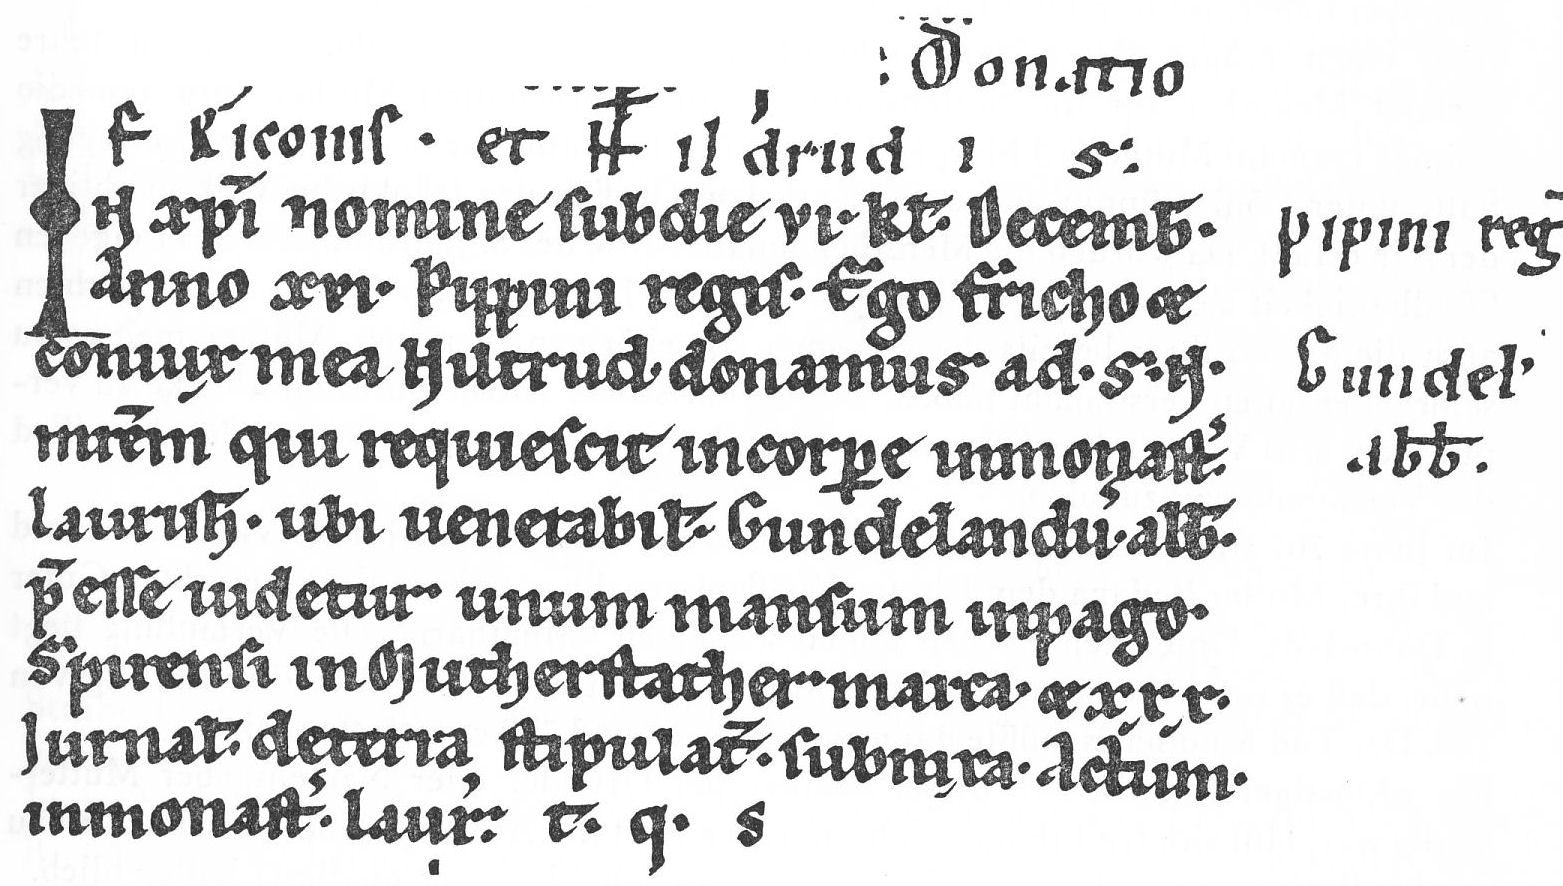 Donatio
Friconis · et Hildrudis :
IN xpi nomine sub die vi · kł · Decemb ·
Anno xvi · Pippini regis · Ego fricho &
coniux mea Hiltrud · donamus ad · s · N ·
mrēm qui requiescit in corpe in monast
laurish · ubi uenerabil Gundelandus · abb ·
p̄esse uidetur unum mansum in pago ·
Spirensi in Mutherstather marca · & xxx ·
Jurnal · de terra, stipulat · subnixa · Actum ·
in monast · laur · t · q · s
pipini reg
Gundel
abb ·